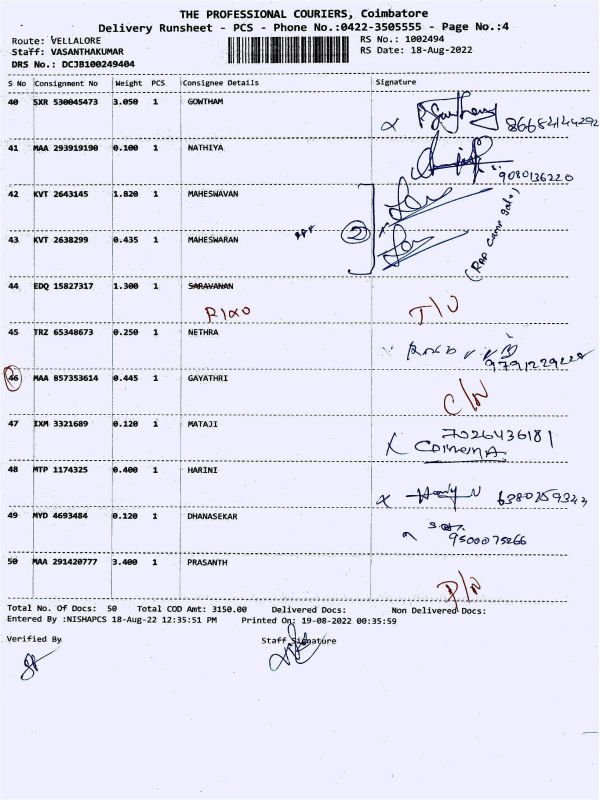 THE PROFESSIONAL COURIERS, Coimbatore
Delivery Runsheet - PCS - Phone No.:0422-3505555 - Page No.:4
Route: VELLALORE RS No.: 1002494
Staff: VASANTHAKUMAR RS Date: 18-Aug-2022
DRS No.: DCJB100249404
S No Consignment No Weight PCS Consignee Details Signature
40 SXR 530045473 3.050 1 GOWTHAM
41 MAA 293919190 0.100 1 NATHIYA
9080136220
42 KVT 2643145 1.820 1 MAHESWAVAN
2
43 KVT 2638299 0.435 1 MAHESWARAN
44 EDQ 15827317 1.300 1 SARAVANAN
T/U
45 TRZ 65348673 0.250 1 NETHRA
46 MAA 857353614 0.445 1 GAYATHRI
C/N
47 IXM 3321689 0.120 1 MATAJI
7026436181
48 MTP 1174325 0.400 1 HARINI
49 MYD 4693484 0.120 1 DHANASEKAR
9500075266
50 MAA 291420777 3.400 1 PRASANTH
P/N
Total No. Of Docs: 50 Total COD Amt: 3150.00 Delivered Docs: Non Delivered Docs:
Entered By :NISHAPCS 18-Aug-22 12:35:51 PM Printed On: 19-08-2022 00:35:59
Verified By Staff Signature